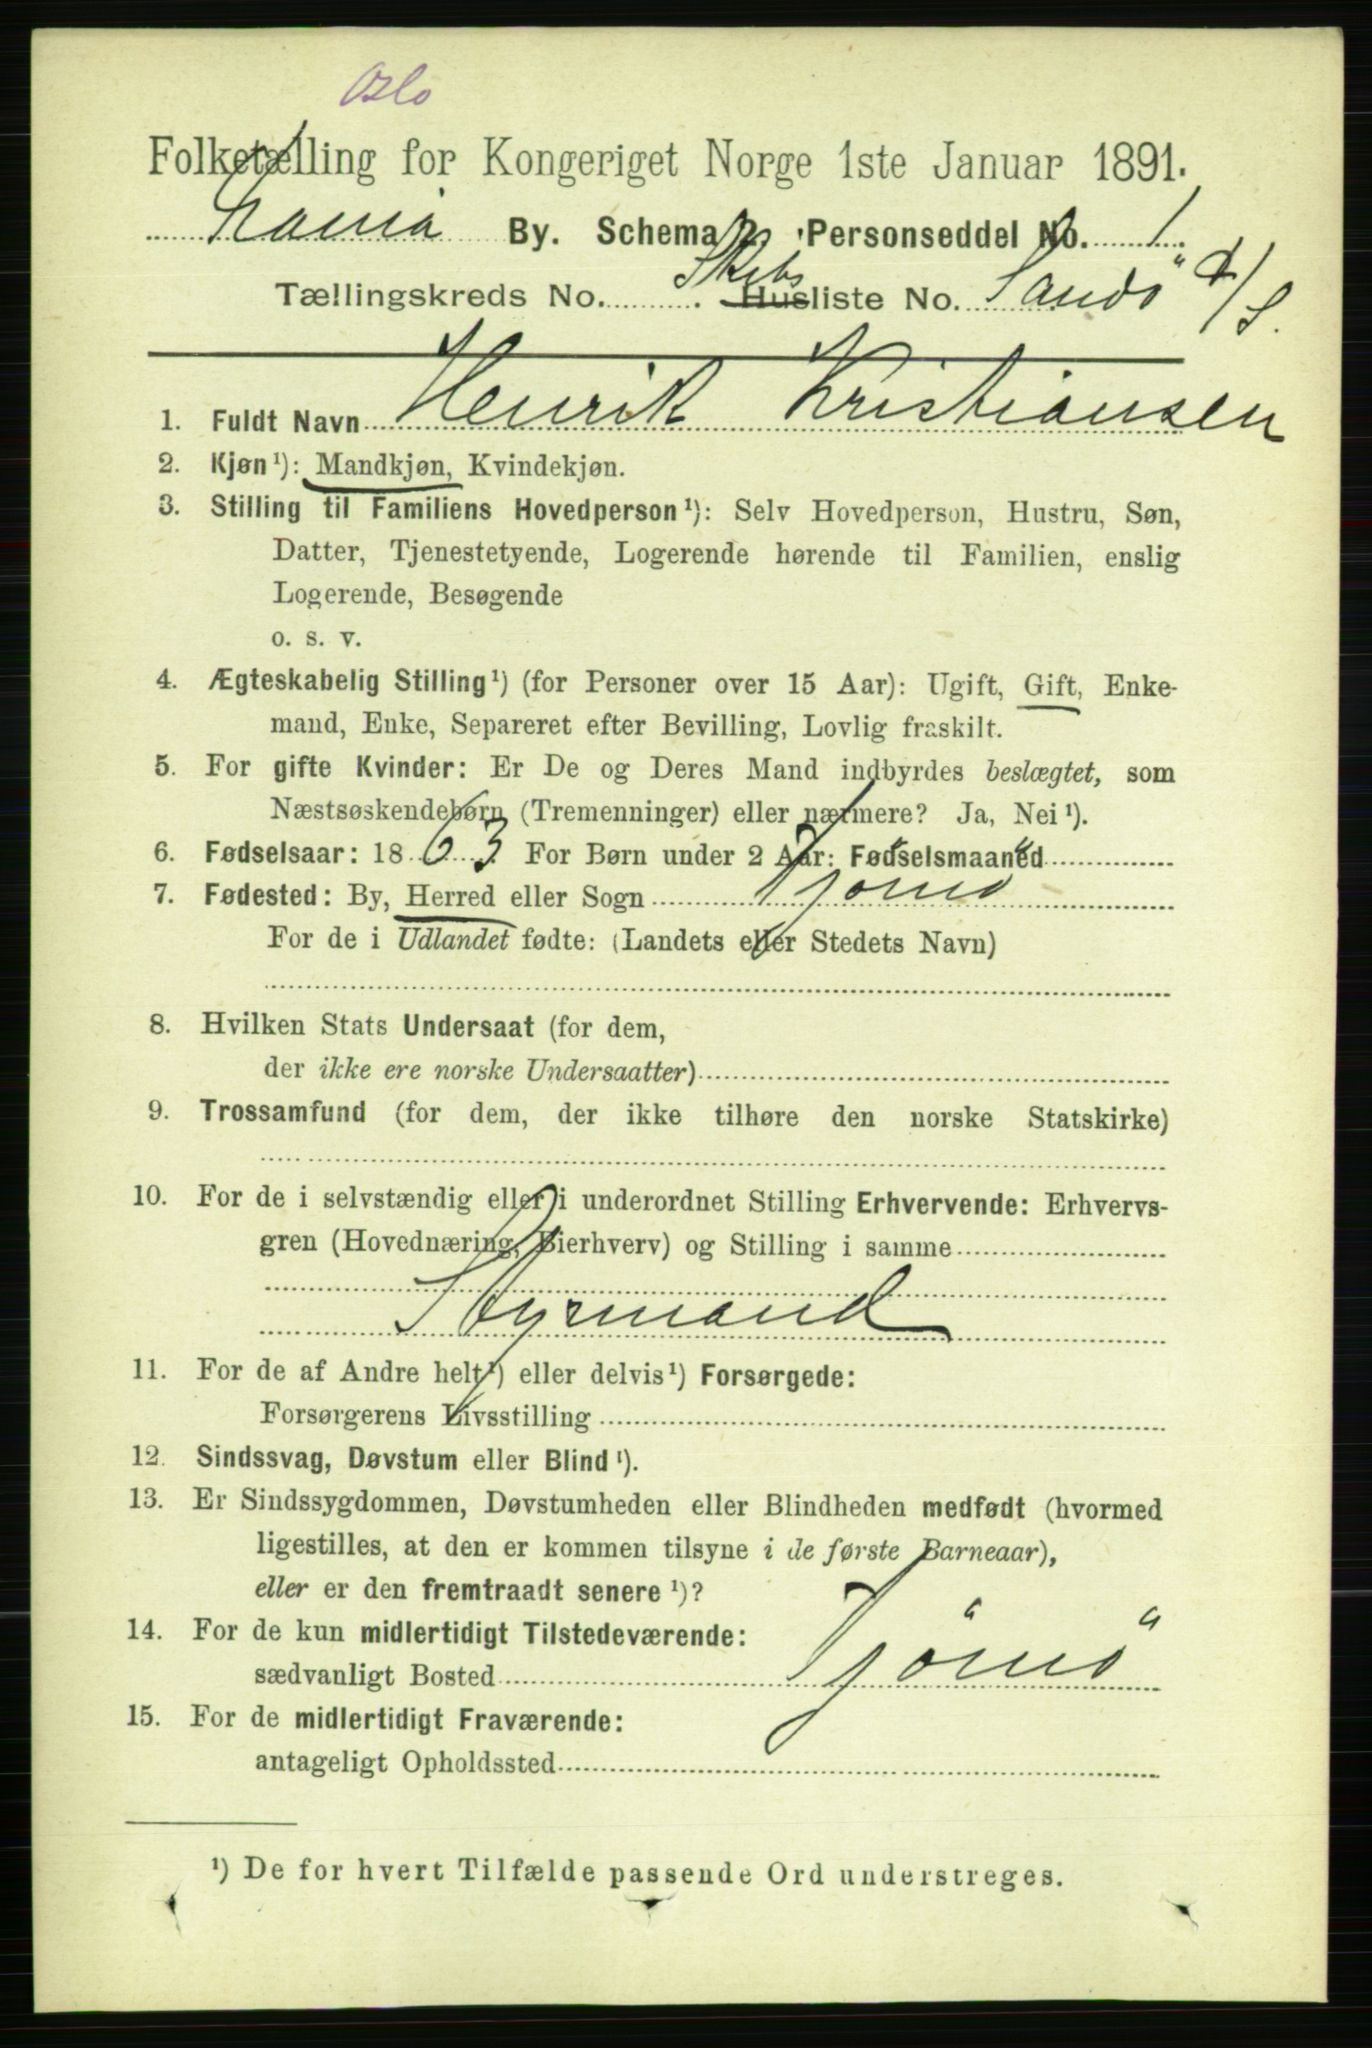 Oslo
Folketælling for Kongeriget Norge 1ste Januar 1891.
By. Schema 2. Personseddel No. 1.
Tællingskreds No. . Skibsliste No. Sandö
1. Fuldt Navn Henrik Kristiansen
2. Kjøn ¹): Mandkjøn, Kvindekjøn.
3. Stilling til Familiens Hovedperson ¹): Selv Hovedperson, Hustru, Søn,
Datter, Tjenestetyende, Logerende hørende til Familien, enslig
Logerende, Besøgende
o. s. v.
4. Ægteskabelig Stilling ¹) (for Personer over 15 Aar): Ugift, Gift, Enke-
mand, Enke, Separeret efter Bevilling, Lovlig fraskilt.
5. For gifte Kvinder: Er De og Deres Mand indbyrdes beslægtet, som
Næstsøskendebørn (Tremenninger) eller nærmere? Ja, Nei ¹).
6. Fødselsaar: 1863. For Børn under 2 Aar: Fødselsmaaned
7. Fødested: By, Herred eller Sogn Tjömö
For de i Udlandet fødte: (Landets eller Stedets Navn)
8. Hvilken Stats Undersaat (for dem,
der ikke ere norske Undersaatter)
9. Trossamfund (for dem, der ikke tilhøre den norske Statskirke)
10. For de i selvstændig eller i underordnet Stilling Erhvervende: Erhvervs-
gren (Hovednæring, Bierhverv) og Stilling i samme
Styrmand
11. For de af Andre helt ¹) eller delvis ¹) Forsørgede:
Forsørgerens Livsstilling
12. Sindssvag, Døvstum eller Blind ¹).
13. Er Sindssygdommen, Døvstumheden eller Blindheden medfødt (hvormed
ligestilles, at den er kommen tilsyne i de første Barneaar),
eller er den fremtraadt senere ¹)?
14. For de kun midlertidigt Tilstedeværende:
sædvanligt Bosted Tjömö
15. For de midlertidigt Fraværende:
antageligt Opholdssted
¹) De for hvert Tilfælde passende Ord understreges.